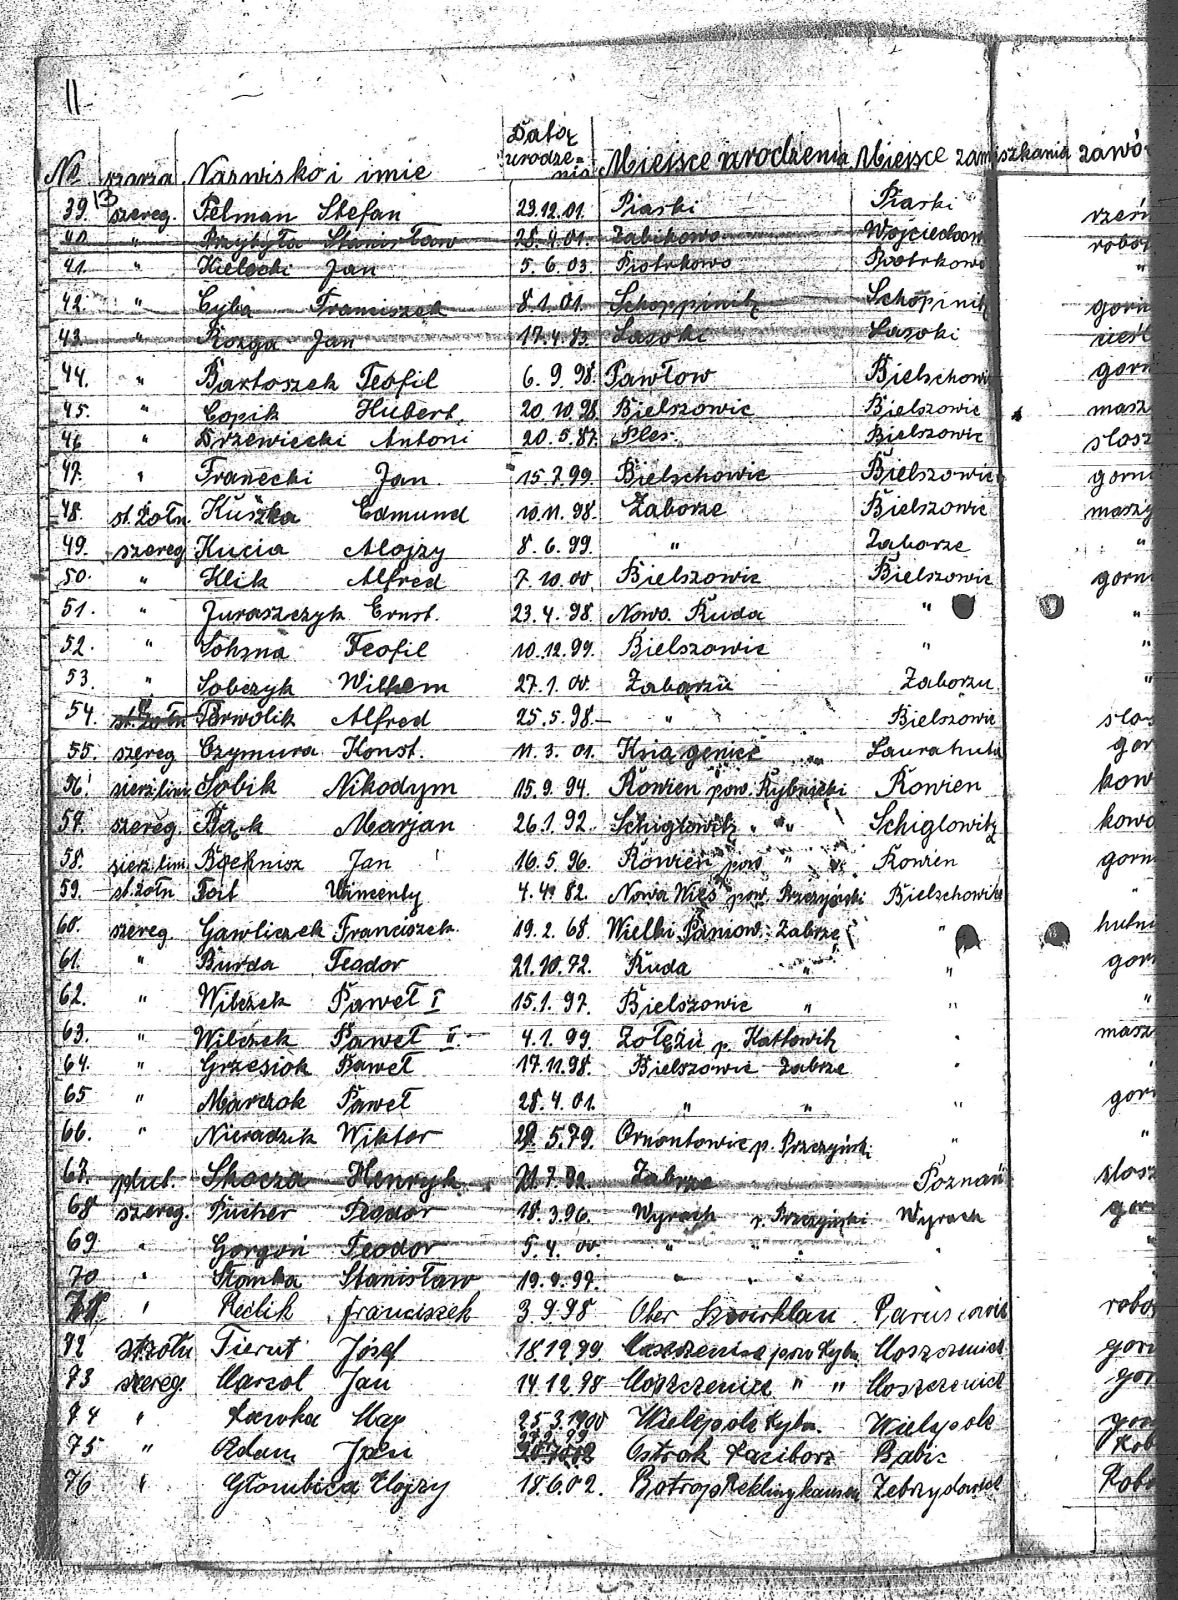 11
№ szarża Nazwisko i imię Data urodzenia Miejsce urodzenia Miejsce zamieszkania zawó
39. 13 szereg. Felman Stefan 23.12.01. Piaski Piaski
40. " Przybyła Stanisław 28.4.01. Żabikowo robot
41. " Kielocki Jan 5.6.03. Piotrkowo Piotrkowo "
42. " Cyba Franciszek 8.1.01. Schoppinitz Schopinitz gorn
43. " Rozga Jan 17.4.83. Lasoki Lasoki
44. " Bartoszek Teofil 6.9.98. Pawłow Bielschowi gorn
45. " Copik Hubert 20.10.98. Bielszowic Bielszowic masz
46 " Drzewiecki Antoni 20.5.87. Ples Bielszowic slosz
47. " Franecki Jan 15.7.99. Bielschowic Bielszowic gorni
48. st. żołn Kuszka Edmund 10.11.98. Zaborze Bielszowic maszy
49. szereg Kucia Alojzy 8.6.99. " Zaborze "
50. " Klik Alfred 7.10.00. Bielszowic Bielszowic gorni
51. " Juraszczyk Ernst. 23.4.98. Nowo. Ruda " "
52. " Sohzna Teofil 10.12.99. Bielszowic " "
53. " Sobczyk Wilhem 27.1.00. Zaborzu Zaborzu "
54. st. żołn Alfred 25.5.98. " Bielszowic slos
55. szereg Czymura Konst. 11.3.01. Książ genicé Laurahuta gor
56. sierż. lini. Sobik Nikodym 15.9.94. Rowien pow. Rybnicki Rowien kow
57. szereg. Bąk Marjan 26.1.92. Schiglowitz " " Schiglowitz kowa
58. sierż. lini. Jan 16.5.96. Rowien pow " Rowien gorn
59. st. żołn Foit Wincenty 4.4.82. Nowa Wieś pow. Bielschowitz "
60. szereg. Gawliczek Franciszek 19.2.68. Wielki Paniow. Zabrze " hutni
61. " Burda Teodor 21.10.72. Ruda " " gorn
62. " Wilczek Paweł I 15.1.97. Bielszowic " " "
63. " Wilczek Paweł II 4.1.99. Zołężu p. Kattowitz " masz
64. " Grzesiok Paweł 17.11.98. Bielszowic Zabrze " "
65 " Marczok Paweł 28.4.01. " " " gorn
66. " Nieradzik Wiktor 5.79. Ornontowic p. " "
67. plut. Skocza Henryk 21.7.92. Zabrze Poznań slosz
68 szereg. Pucher Teodor 18.3.96. Wyrach p. Wyrach gorn
69 " Gorgoń Teodor 5.4.00. " " " " "
70 " Stanisław 19.4.97. " " " "
71. " Redlik franciszek 3.9.98 Ober robo
72 st. żołn Tierut Józef 18.12.99. Moszczenica pow Rybn Moszczenica gorn
73 szereg. Marcol Jan 14.12.98 Moszczenica " " Moszczenica gor
74 " Kawka Max 25.3.1900 Wielopole Rybn. Wielopole gorn
75 " Adam Jan Ostrok Raciborz Babic Rob
76 " Głombica Alojzy 18.6.02. Botrop Reklinghausen Robo